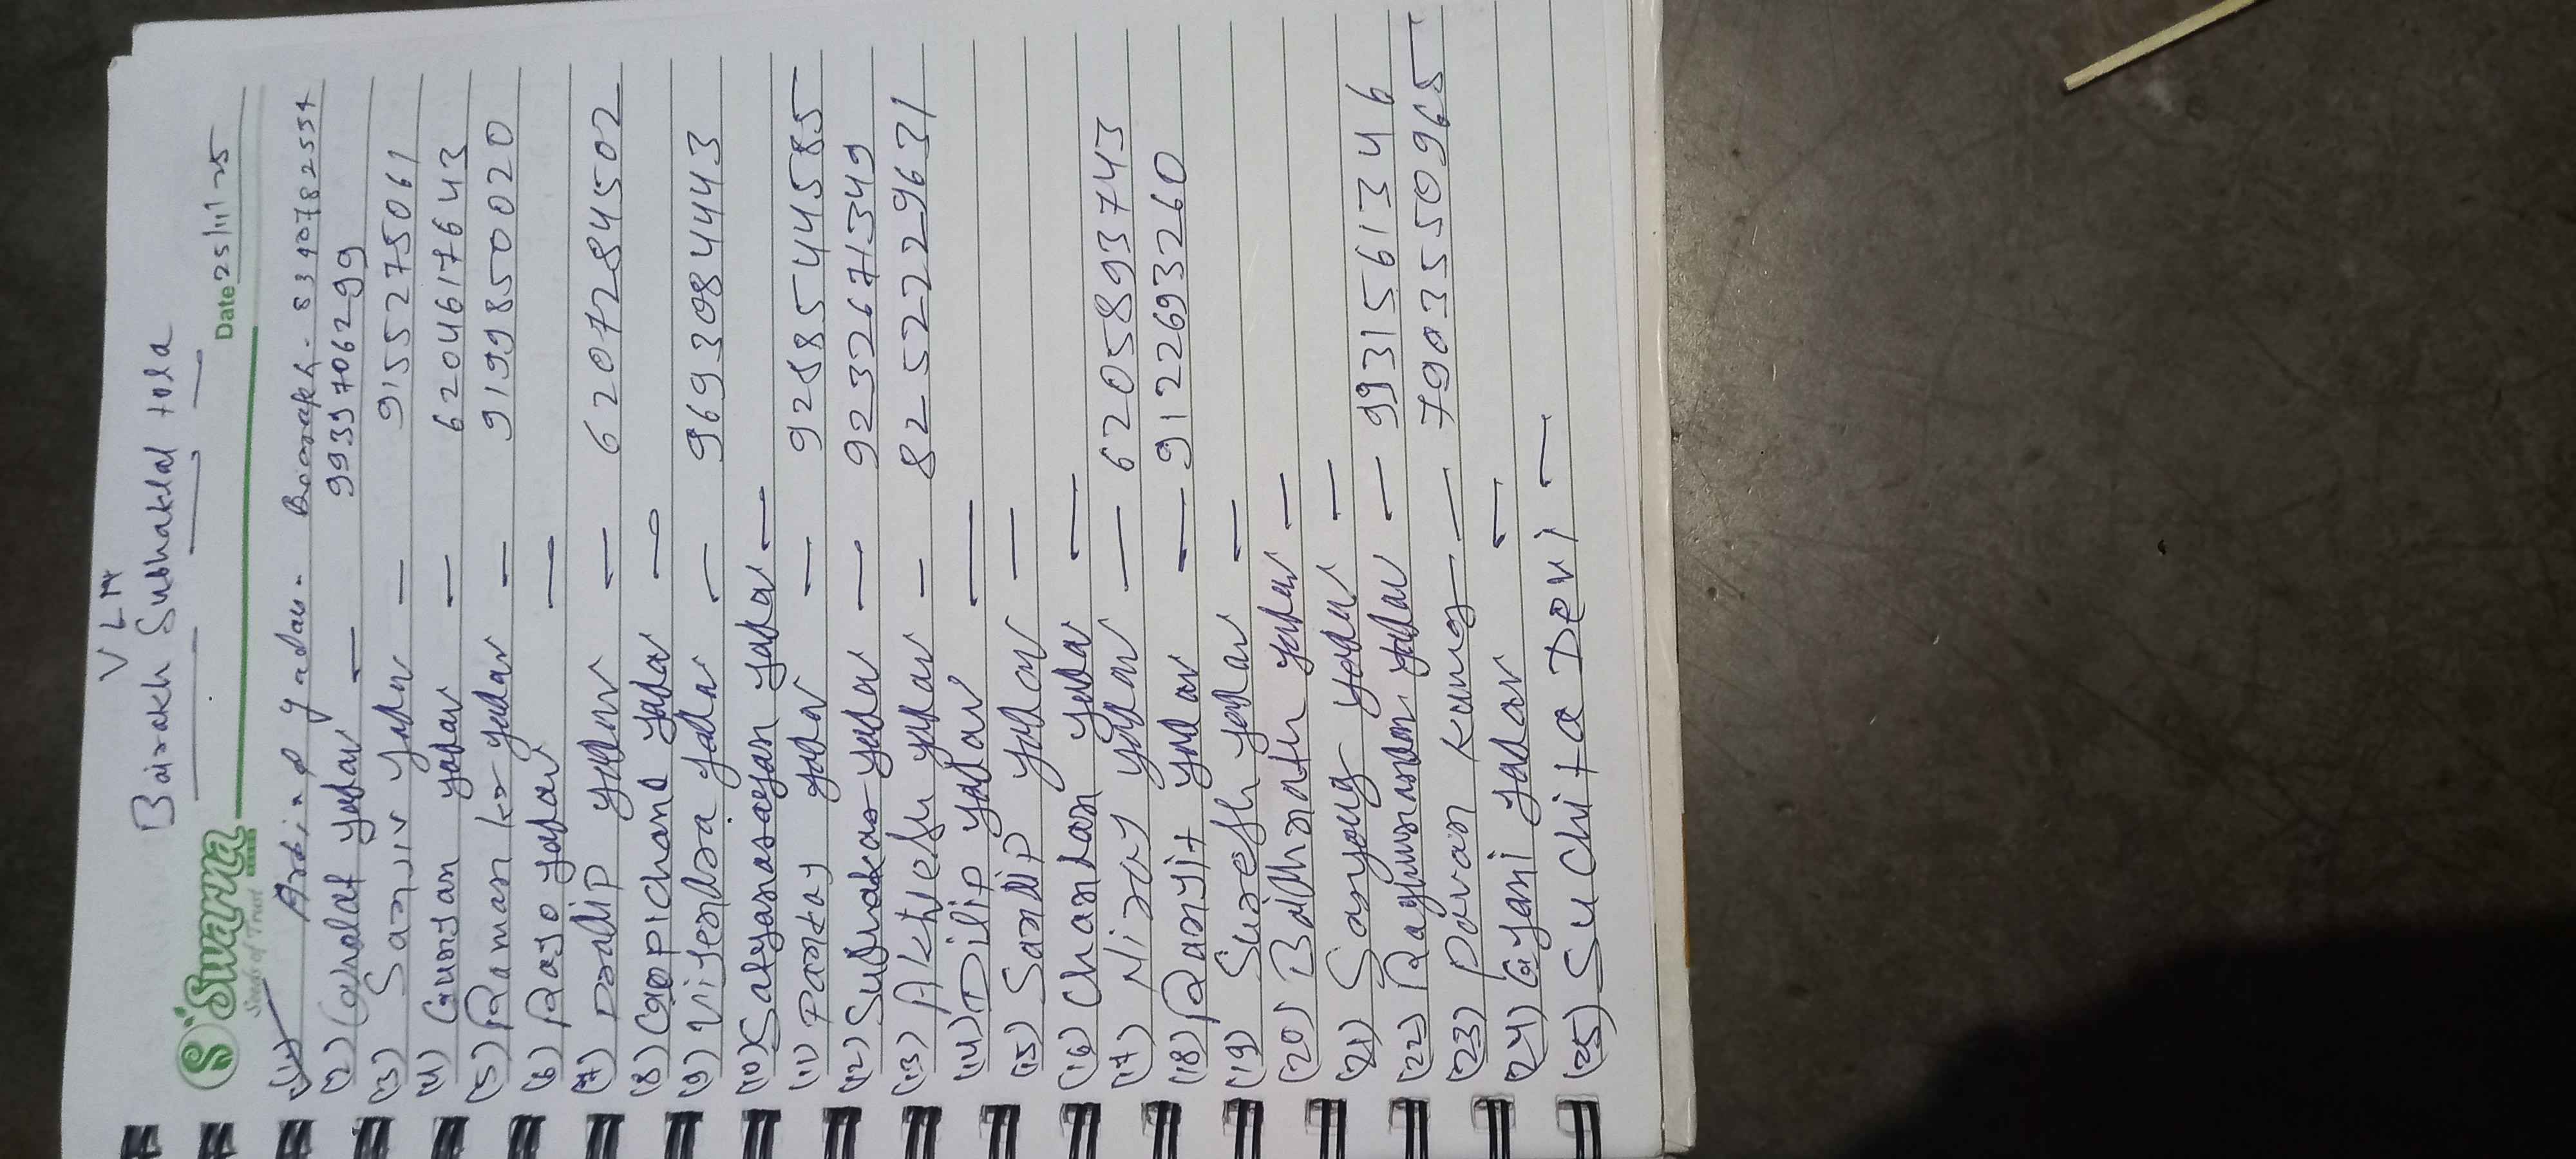 VLM
Bairakh Subhaklal tola
Swarna
Seeds of Trust
Date 25/11/25
(1) Arbind yadav. Bairakh. 8340782554
(2) yadav — 9939706299
(3) Sanjiv yadav — 9155275061
(4) Gunjan yadav — 6204617643
(5) Raman kr yadav — 9199850020
(6) Rajo yadav —
(7) Pradip yadav — 6207284502
(8) Gopichand yadav —
(9) Virendra yadav — 9693084443
(10) Satyanarayan yadav —
(11) Pankaj yadav — 9288544585
(12) Sudhakar yadav — 9232671349
(13) Akhilesh yadav — 8252229631
(14) Dilip yadav —
(15) Sandip yadav —
(16) Chandan yadav —
(17) Niraj yadav — 6205893743
(18) Ranjit yadav — 9122693260
(19) Suresh yadav —
(20) Baidhnath yadav —
(21) Sanyog yadav —
(22) Raghunandan yadav — 9931561346
(23) Pavan Kumar — 7903550965
(24) Gyani yadav —
(25) Suchita Devi —